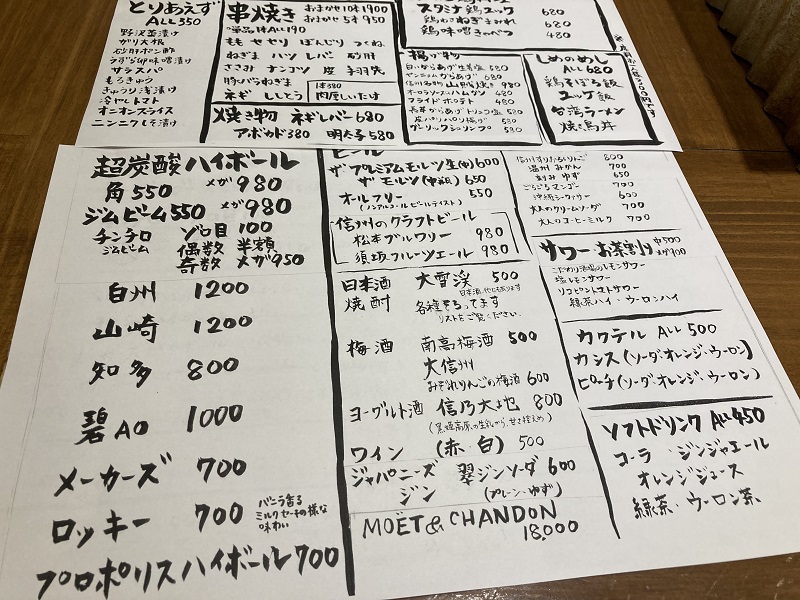 とりあえず
ALL350
野沢菜漬け
ガリ大根
砂肝ポン酢
うずら卵味噌漬け
サラスパ
もろきゅう
きゅうり浅漬け
冷やしトマト
オニオンスライス
ニンニクもろ漬け
串焼き おまかせ10本1900
おまかせ5本950
単品1本ALL190
もも せせり ぼんじり つくね
ねぎま ハツ レバー 砂肝
ささみ ナンコツ 皮 手羽先
豚バラねぎま
ネギ ししとう
1本380
肉厚しいたけ
焼き物 ネギレバー 680
アボカド380 明太子580
スタミナ鶏ユッケ 680
鶏わさねぎまみれ 680
鶏味噌きゃべつ 480
揚げ物
フライドポテト 480
ガーリックシュリンプ 580
しめのめし
ALL 680
鶏そぼろ飯
ユッケ飯
台湾ラーメン
焼き鳥丼
超炭酸ハイボール
角 550 メガ 980
ジムビーム550 メガ 980
チンチロ ゾロ目 100
ジムビーム 偶数 半額
奇数 メガ950
白州 1200
山崎 1200
知多 800
碧Ao 1000
メーカーズ 700
ロッキー 700
バニラ香る
ミルクセーキの様な
味わい
プロポリスハイボール700
ビール
ザ・プレミアムモルツ生(中)600
ザ・モルツ(中瓶)650
オールフリー 550
(ノンアルコールビールテイスト)
信州のクラフトビール
松本ブルワリー 980
須坂フルーツエール 980
日本酒 大雪渓 500
日本酒、他にもあります
焼酎 各種そろってます
リストをご覧ください。
梅酒 南高梅酒 500
大信州
みぞれりんごの梅酒 600
ヨーグルト酒 信乃大地 800
(黒姫高原の生乳から、甘さ控えめ)
ワイン (赤・白) 500
ジャパニーズ 翠ジンソーダ 600
ジン (プレーン・ゆず)
MOËT & CHANDON
18,000
信州すりおろしりんご 800
温州みかん 700
刻みゆず 650
ごろごろマンゴー 700
沖縄シークァサー 600
大人のクリームソーダ 700
大人のコーヒーミルク 700
サワー・お茶割り 中500
メガ900
こだわり酒場のレモンサワー
塩レモンサワー
リコピントマトサワー
緑茶ハイ・ウーロンハイ
カクテル ALL 500
カシス(ソーダ・オレンジ・ウーロン)
ピーチ(ソーダ・オレンジ・ウーロン)
ソフトドリンク ALL450
コーラ・ジンジャエール
オレンジジュース
緑茶・ウーロン茶